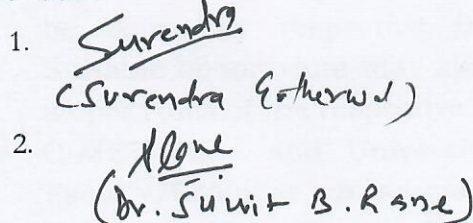 1. Surendra
(Surendra Gotherwal)
2.
(Dr. Sumit B. Rane)